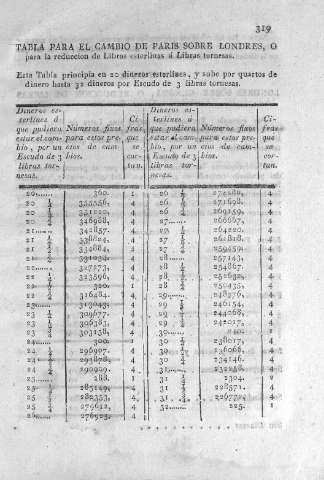 319
TABLA PARA EL CAMBIO DE PARIS SOBRE LONDRES, O
para la reduccion de Libras esterlinas á Libras tornesas.
Esta Tabla principia en 20 dineros esterlines, y sube por quartos de
dinero hasta 32 dineros por Escudo de 3 libras tornesas.
Dineros es- Ci- Dineros es- Ci-
terlines á fras terlines á fras
que pudiera Números fixos que que pudiera Números fixos que
estar el cam- para estos pre- se estar el cam- para estos pre- se
bio, por un cios de cam- cor- bio, por un cios de cam- cor-
Escudo de 3 bios. tan. Escudo de 3 bios. tan.
libras tor- libras tor-
nesas. nesas.
20...... 360. 1 26 1/4 4
20 1/4 355556. 4 26 1/2 271698. 4
20 1/2 4 26 3/4 269159. 4
20 3/4 346988. 4 27...... 266667. 4
21...... 342857. 4 27 1/4 264220. 4
21 1/4 338824. 4 27 1/2 261818. 4
21 1/2 334884. 4 27 3/4 259459. 4
21 3/4 331034. 4 28...... 257143. 4
22...... 327273. 4 28 1/4 254867. 4
22 1/4 323596. 4 28 1/2 4
22 1/2 320. 1 28 3/4 4
22 3/4 316484. 4 29...... 248276. 4
23...... 313043. 4 29 1/4 246154. 4
23 1/4 309677. 4 29 1/2 244068. 4
23 1/2 306383. 4 29 3/4 242017. 4
23 3/4 303158. 4 30...... 240. 1
24...... 300. 1 30 1/4 238017. 4
24 1/4 296907. 4 30 1/2 236066. 4
24 1/2 293878. 4 30 3/4 234146. 4
24 3/4 290909. 4 31...... 232258. 4
25...... 288. 1 31 1/4 2304. 1
25 1/4 285149. 4 31 1/2 228571. 4
25 1/2 282353. 4 31 3/4 226772. 4
25 3/4 279612. 4 32...... 225. 1
26 276923. 4